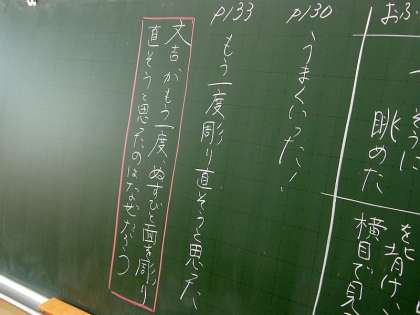 おふ
そうに
眺めた
を背け
横目で見
p130
うまくいった！
p133
もう一度彫り直そうと思った
文吉がもう一度、ぬすびと面を彫り
直そうと思ったのはなぜだろう